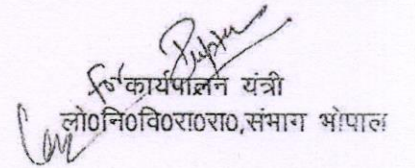 for
कार्यपालन यंत्री
लो0नि0वि0रा0रा0,संभाग भोपाल